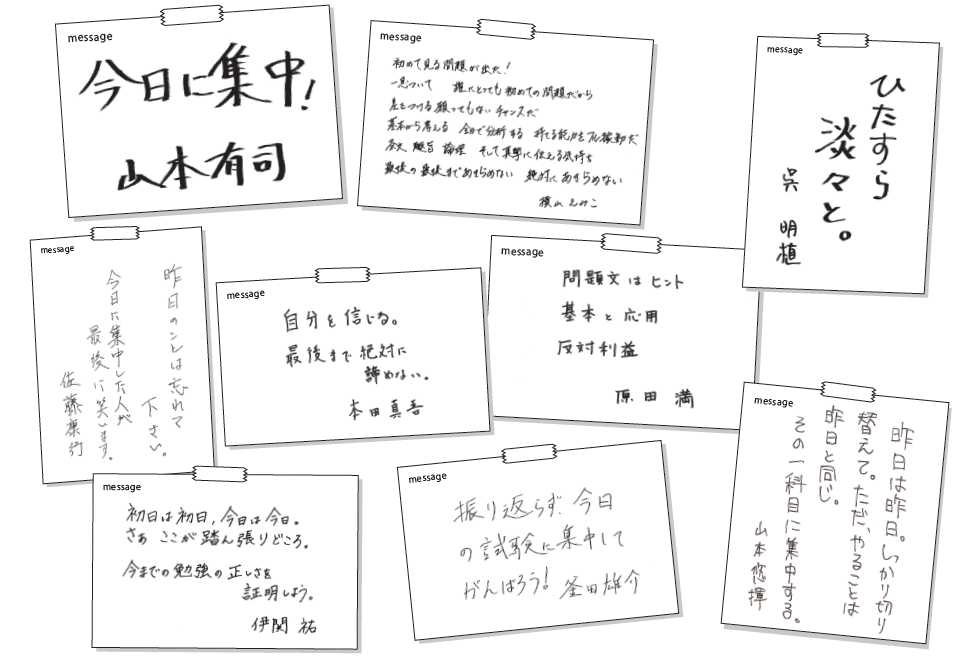 message
今日に集中!
山本有司
message
初めて見る問題が出た!
一息ついて 誰にとっても初めての問題だから
差をつける願ってもないチャンスだ
基本から考える 全力で分析する 持てる能力をフル稼動だ
条文 趣旨 論理 そして真摯に伝える気持ち
最後の最後まであきらめない 絶対にあきらめない
横山えみこ
message
ひたすら
淡々と。
呉 明植
message
昨日のことは忘れて
下さい。
今日に集中した人が
最後に笑います。
佐藤凛行
message
自分を信じる。
最後まで絶対に
諦めない。
本田真吾
message
問題文はヒント
基本と応用
反対利益
原田 満
message
昨日は昨日。しっかり切り
替えて。ただ、やることは
昨日と同じ。
その一科目に集中する。
山本悠揮
message
初日は初日,今日は今日。
さぁ ここが踏ん張りどころ。
今までの勉強の正しさを
証明しよう。
伊関 祐
message
振り返らず、今日
の試験に集中して
がんばろう! 釜田雄介